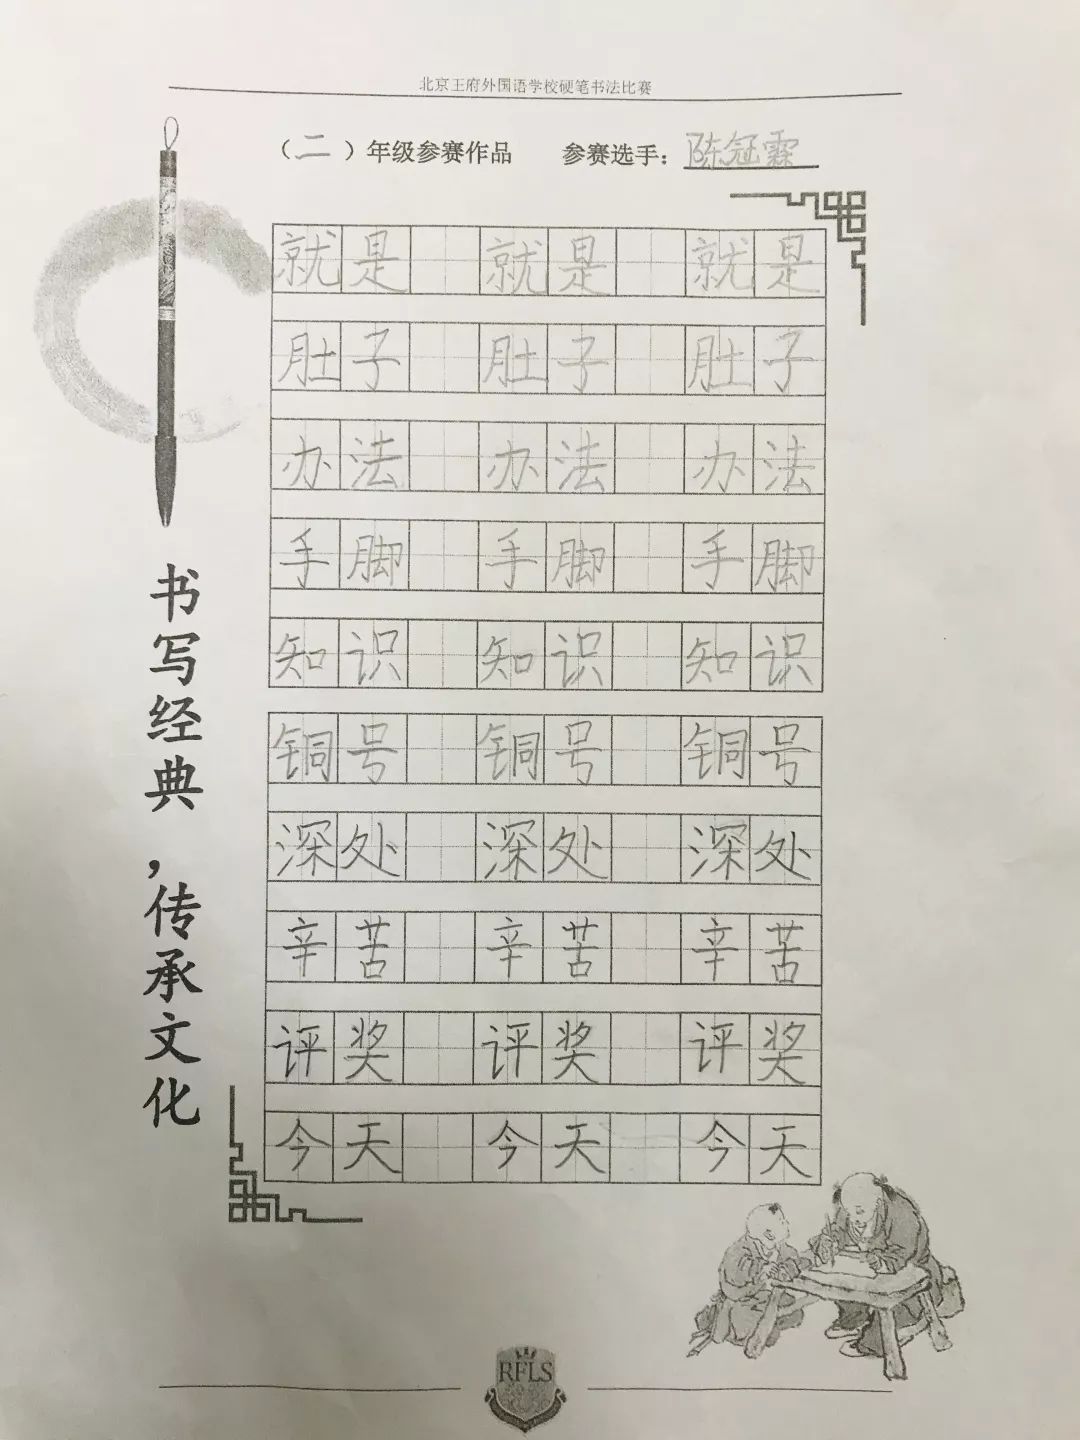 北京王府外国语学校硬笔书法比赛
（二）年级参赛作品 参赛选手：陈冠霖
就是 就是 就是
肚子 肚子 肚子
办法 办法 办法
手脚 手脚 手脚
知识 知识 知识
铜号 铜号 铜号
深处 深处 深处
辛苦 辛苦 辛苦
评奖 评奖 评奖
今天 今天 今天
书写经典，传承文化
RFLS